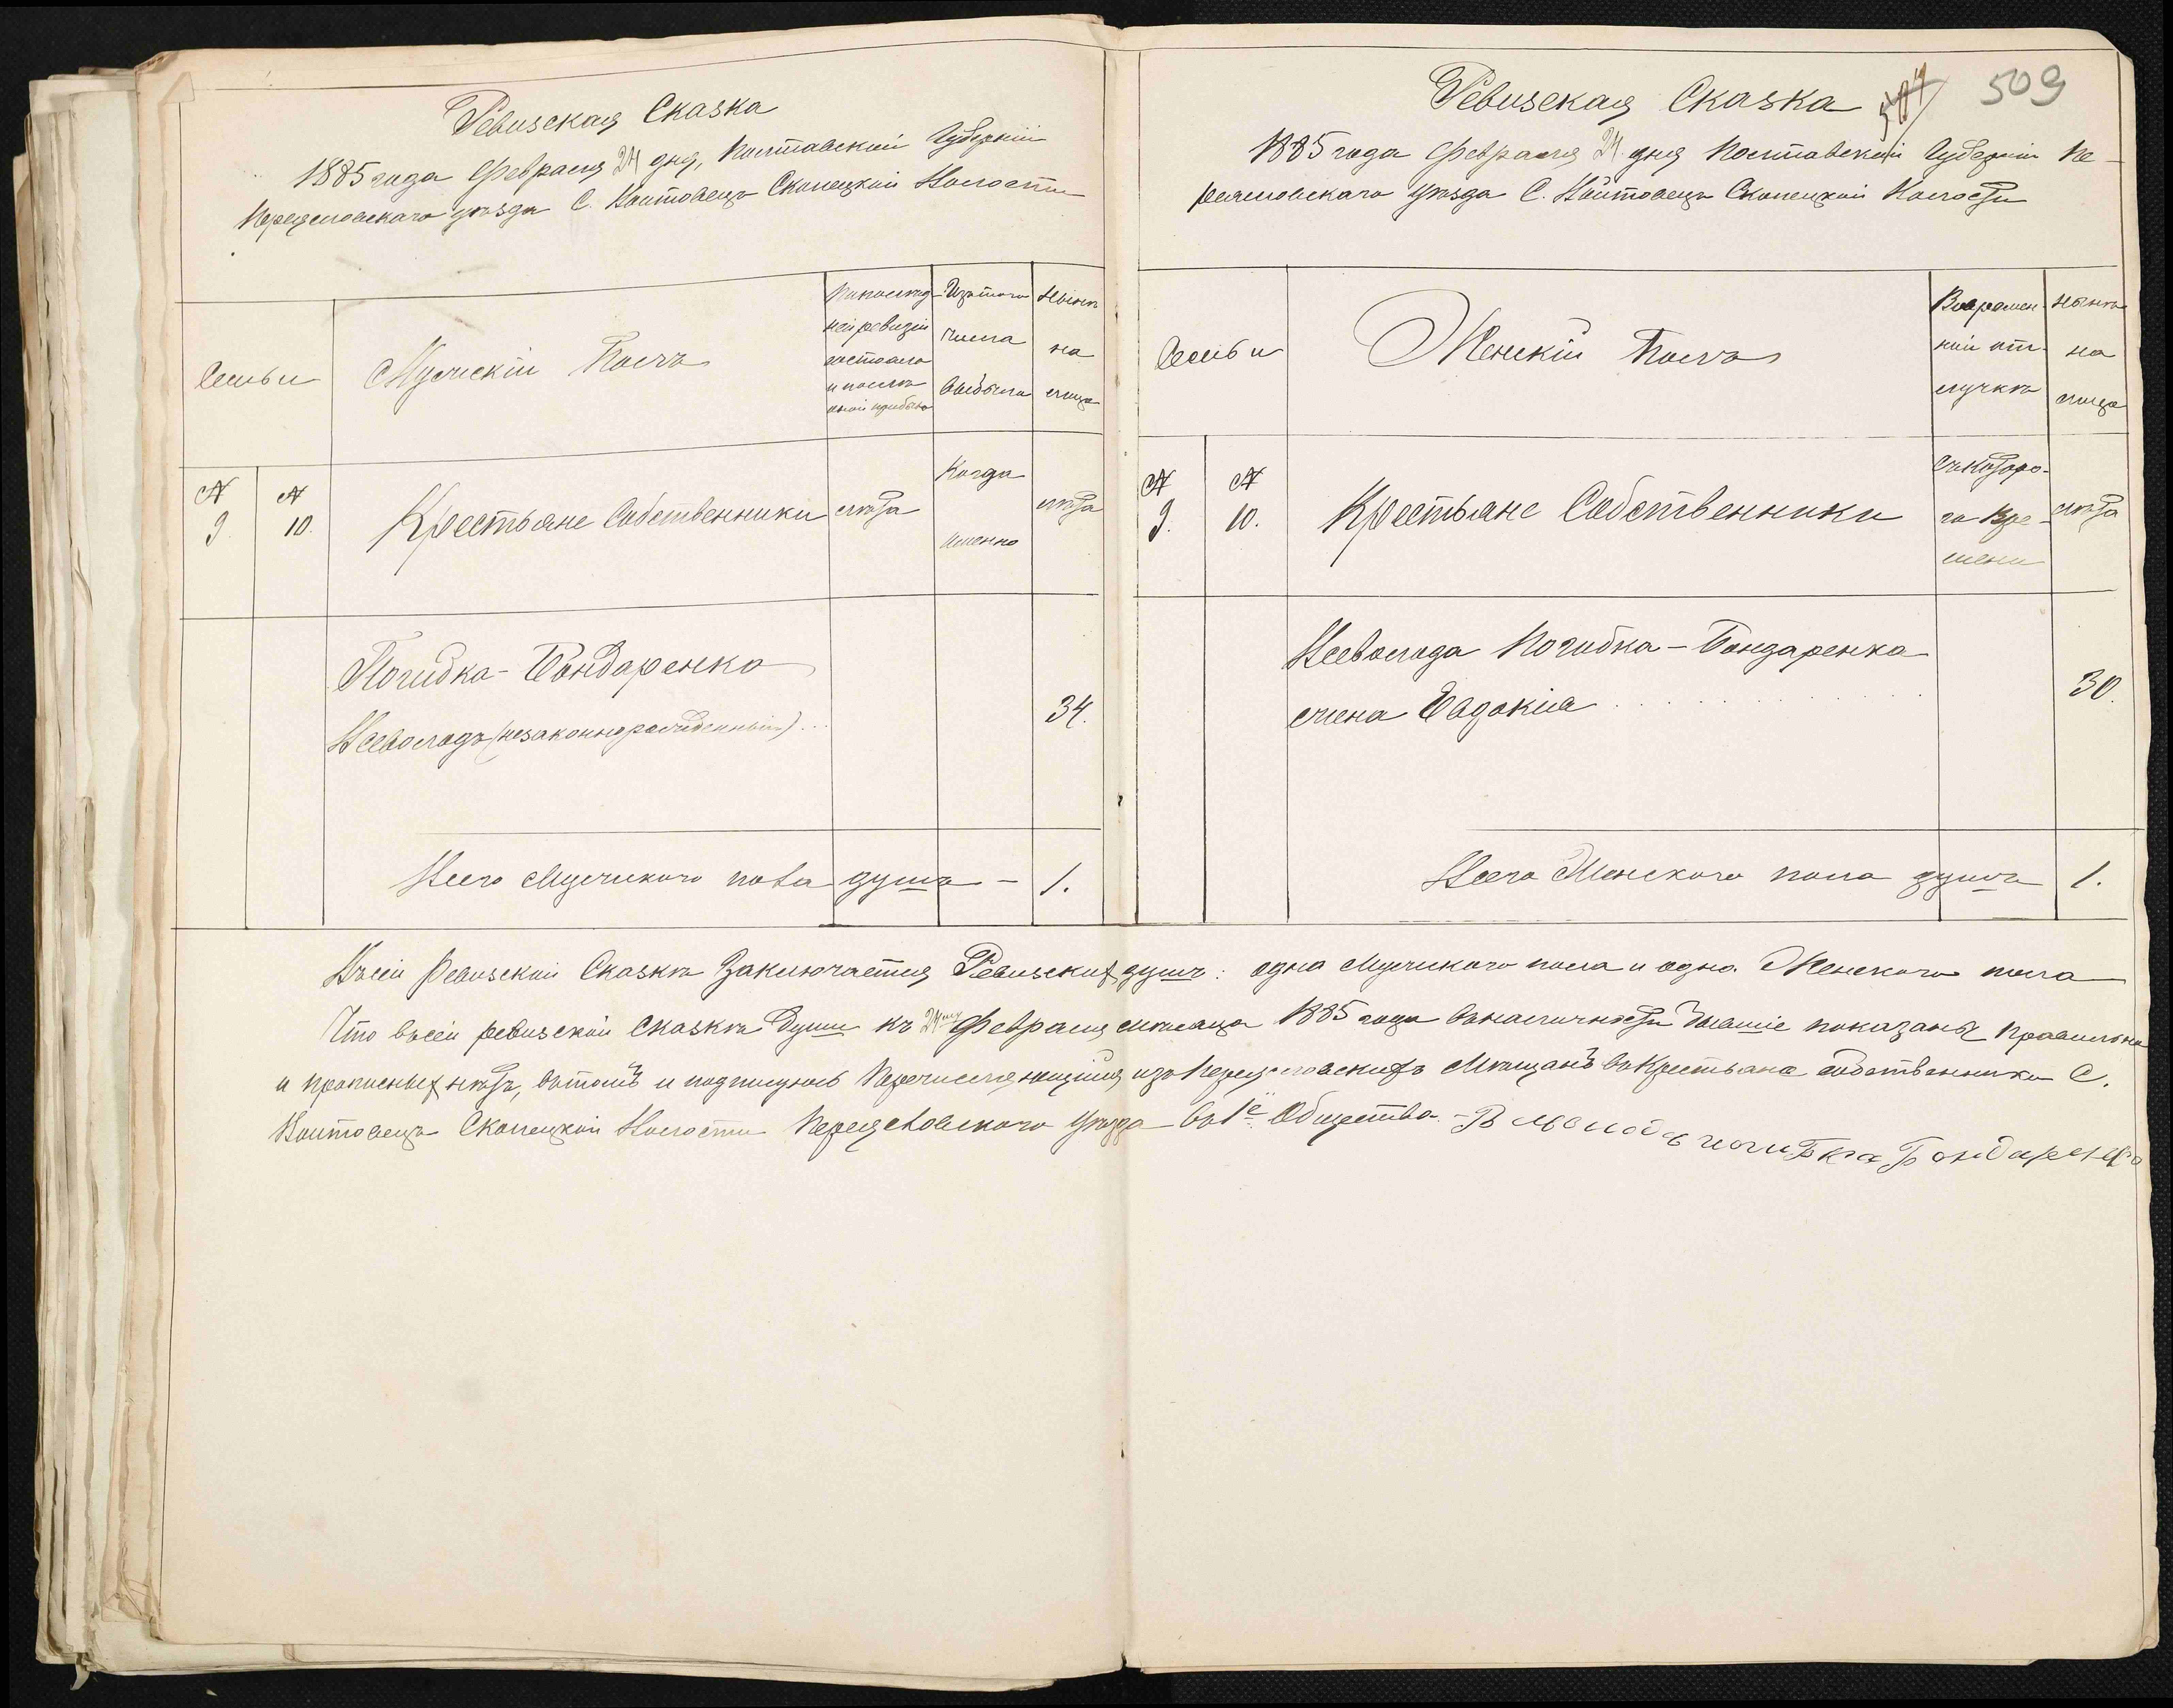 Ревизская Сказка
1885 года Февраля 24 дня, Полтавской Губерніи
Переяславскаго уѣзда С. Войтовецъ Скопецкой Волости
Семьи
Мужескій Полъ
По послѣд-
ней ревизіи
состояло
и послѣ
оной прибыло
Изъ того
числа
выбыло
Нынѣ
на
лицо
№ 9.
№ 10.
Крестьяне Собственники
лѣта
Когда
именно
лѣта
Погибка-Бондаренко
Всеволодъ (незаконнорожденный) ...
34.
Всего Мужескаго пола душъ - 1.
Ревизская Сказка
509
1885 года Февраля 24 дня Полтавской Губерніи Пе-
реяславскаго уѣзда С. Войтовецъ Скопецкой Волости
Семьи
Женскій Полъ
Во времен-
ной отъ-
лучкѣ
Нынѣ
на
лицо
№ 9.
№ 10.
Крестьяне Собственники
Съ котора-
го вре-
мени
лѣта
Всеволода Погибка-Бондаренка
жена Евдокія . . . . . .
30.
Всего Женскаго пола душъ 1.
Въ сей Ревизской Сказкѣ Заключается Ревизскихъ душъ: одна Мужескаго пола и одна Женскаго пола
Что въ сей ревизской Сказкѣ Души къ 24му Февраля мѣсяца 1885 года въ наличности бывшіе показаны правильно
и прописныхъ нѣтъ, въ томъ и подписуюсь Перечисляющійся изъ Переяславскихъ Мѣщанъ въ Крестьяне собственники С.
Войтовецъ Скопецкой Волости Переяславскаго уѣзда въ 1е Общество - Всеволодъ погибка Бондаренко